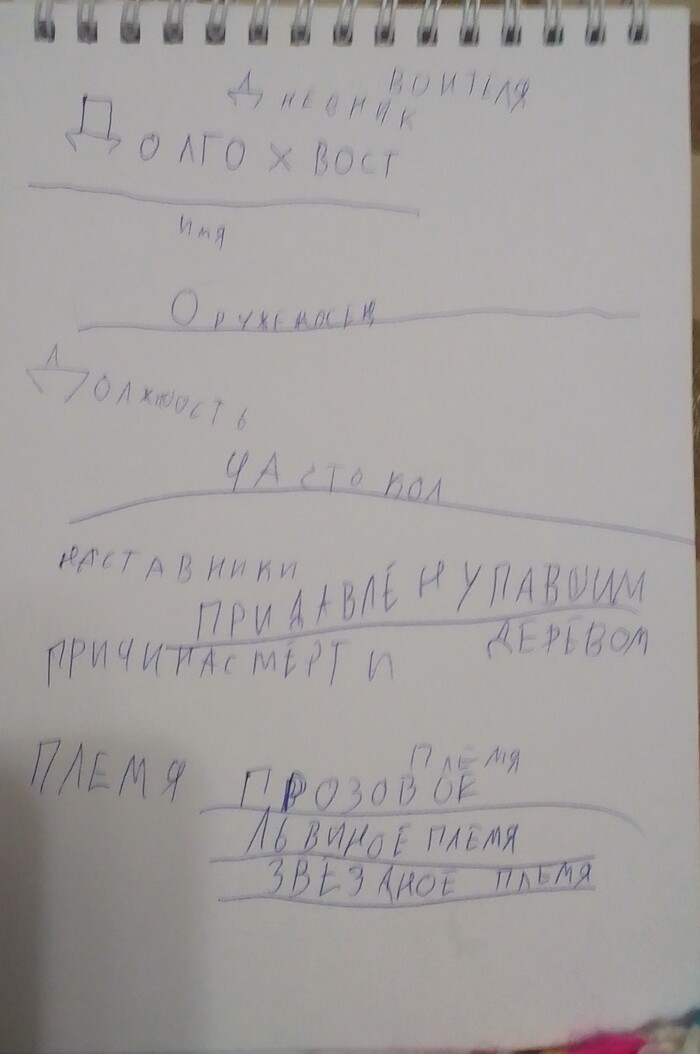 Дневник воителя
Долгохвост
имя
Оруженосец
Должность
Частокол
наставники
Придавлен упавшим
деревом
Причина смерти
Племя
Племя
Грозовое
Львиное племя
Звёздное племя